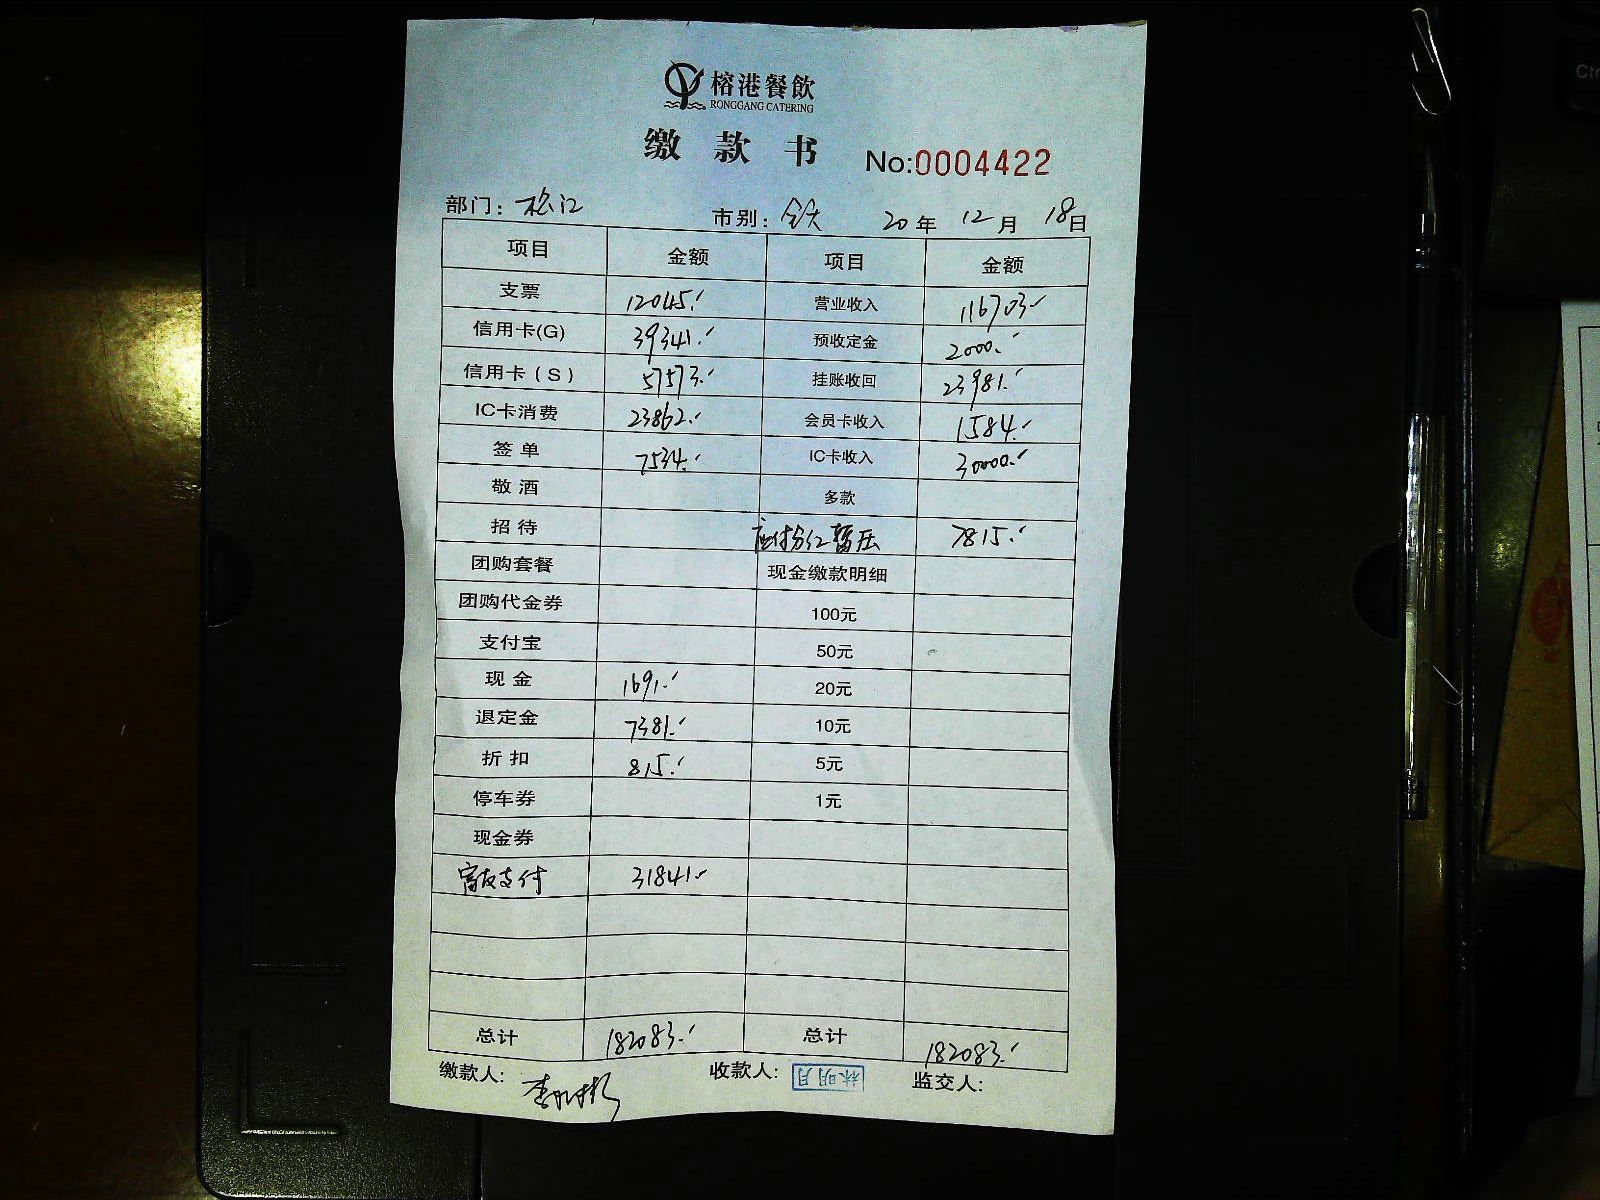 榕港餐飲
RONGGANG CATERING
缴 款 书
No:0004422
部门: 松江 市别: 全天 20年 12月 18日
项目 金额 项目 金额
支票 12045.- 营业收入 116703-
信用卡(G) 39341.- 预收定金 2000.-
信用卡(S) 57573.- 挂账收回 23981.-
IC卡消费 23862.- 会员卡收入 1584.-
签单 7534.- IC卡收入 30000.-
敬酒 多款
招待 应付分红暂压 7815.-
团购套餐 现金缴款明细
团购代金券 100元
支付宝 50元
现金 1691.- 20元
退定金 7381.- 10元
折扣 815.- 5元
停车券 1元
现金券
富友支付 31841.-
总计 182083.- 总计 182083.-
缴款人: 收款人: 林明月 监交人:
Ctr